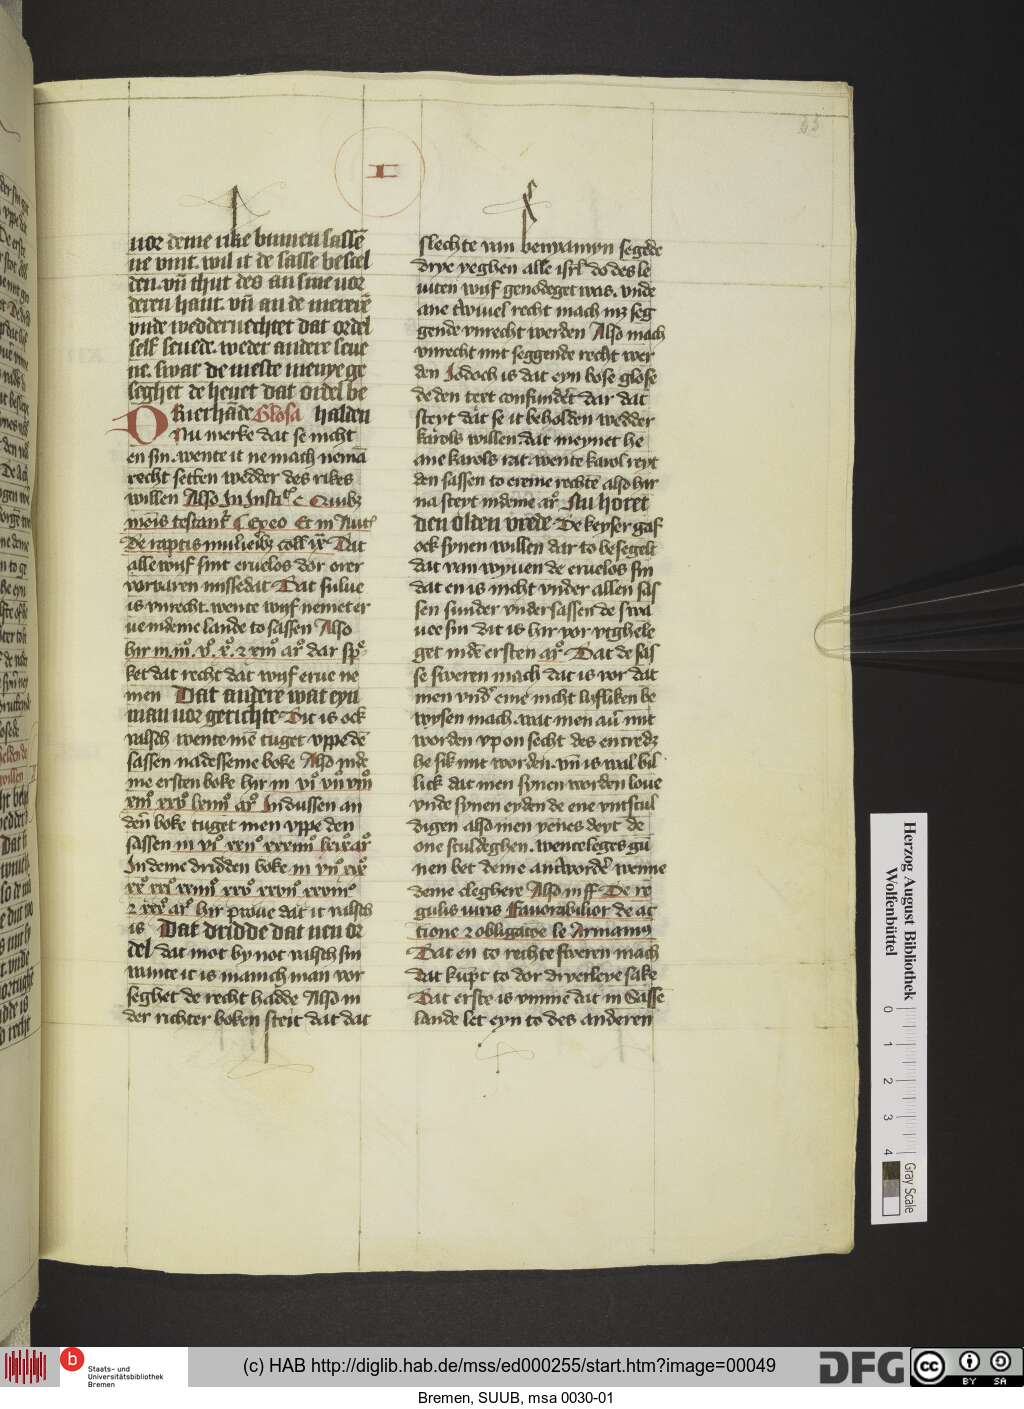 I
vor deme rike binnen sassē
ne vint. wil it de sasse beschel
den. vn̄ thut des an sine vor
deren hant. vn̄ an de mererē
vnde wedderuechtet dat ordel
self seuede. weder andere seue
ne. swat de meste menye ge
seghet de heuet dat ordel be
Drierhāde Glosa halden
Nu merke dat se nicht
en sin. wente it ne mach nemā
recht setten wedder des rikes
willen Also In Insti. e Quibz
alle wyf sint eruelos dor orer
vorvaren missedat Dat sulue
is vnrecht. wente wyf nemet er
ue indeme lande to sassen Also
ket dat recht dat wyf erue ne
men Dat andere wat eyn
man vor gerichte Dit is ock
valsch wente mē tuget vppe dē
sassen na desseme boke Also inde
me ersten boke hir in
Indussen an
derē boke tuget men vppe den
sassen in
In deme dridden boke in
hir prove dat it valsch
is Dat dridde dat neu or
del dat mot by not valsch sin
wente it is manich man vor
seghet de recht hadde Also in
der richter boken steit dat dat
slechte van benyamyn segede
drye yeghen alle isrl do des le
uiten wyf genodeget was. vnde
ane twiuel recht mach inz seg
gende vnrecht werden Also mach
vnrecht mit seggende recht wer
den Jodoch is dat eyn bose glose
de den text confundert dar dat
steyt dat se it beholden wedder
karols willen. dat meynet he
ane karols rat. wente karol reyt
den sassen to ereme rechte also hir
na steyt indeme ar. Nu horet
den olden vrede De keyser gaf
ock synen willen dar to besegelt
dat van wyuen de eruelos sin
dat en is nicht vnder allen sas
sen sunder vnder sassen de swa
uee sin dit is hir vor vtghele
get in de ersten ar. Dat de sas
se sweren mach dat is vor dat
men vnd eme nicht lyfliken be
wysen mach. wat men auer mit
worden vp on secht des entredz
he sik mit worden. vn̄ is wal bil
lick dat men synen worden loue
vnde synen eyden de ene vntscul
digen also men yenes deyt de
one sculdeghen. wente leges gū
nen bet deme antworder wenne
deme cleghere Also in ff De re
gulis iuris Fauorabilior de ac
tione et obligatōe le Arrianus
Dat en to rechte sweren mach
dat kupt to dor dryerleye sake
Dat erste is vmme dat in Sasse
lande let eyn to des anderen
Herzog August Bibliothek
Wolfenbüttel
0 1 2 3 4
Gray Scale
b
Staats- und
Universitätsbibliothek
Bremen
(c) HAB http://diglib.hab.de/mss/ed000255/start.htm?image=00049
DFG
cc
BY SA
Bremen, SUUB, msa 0030-01